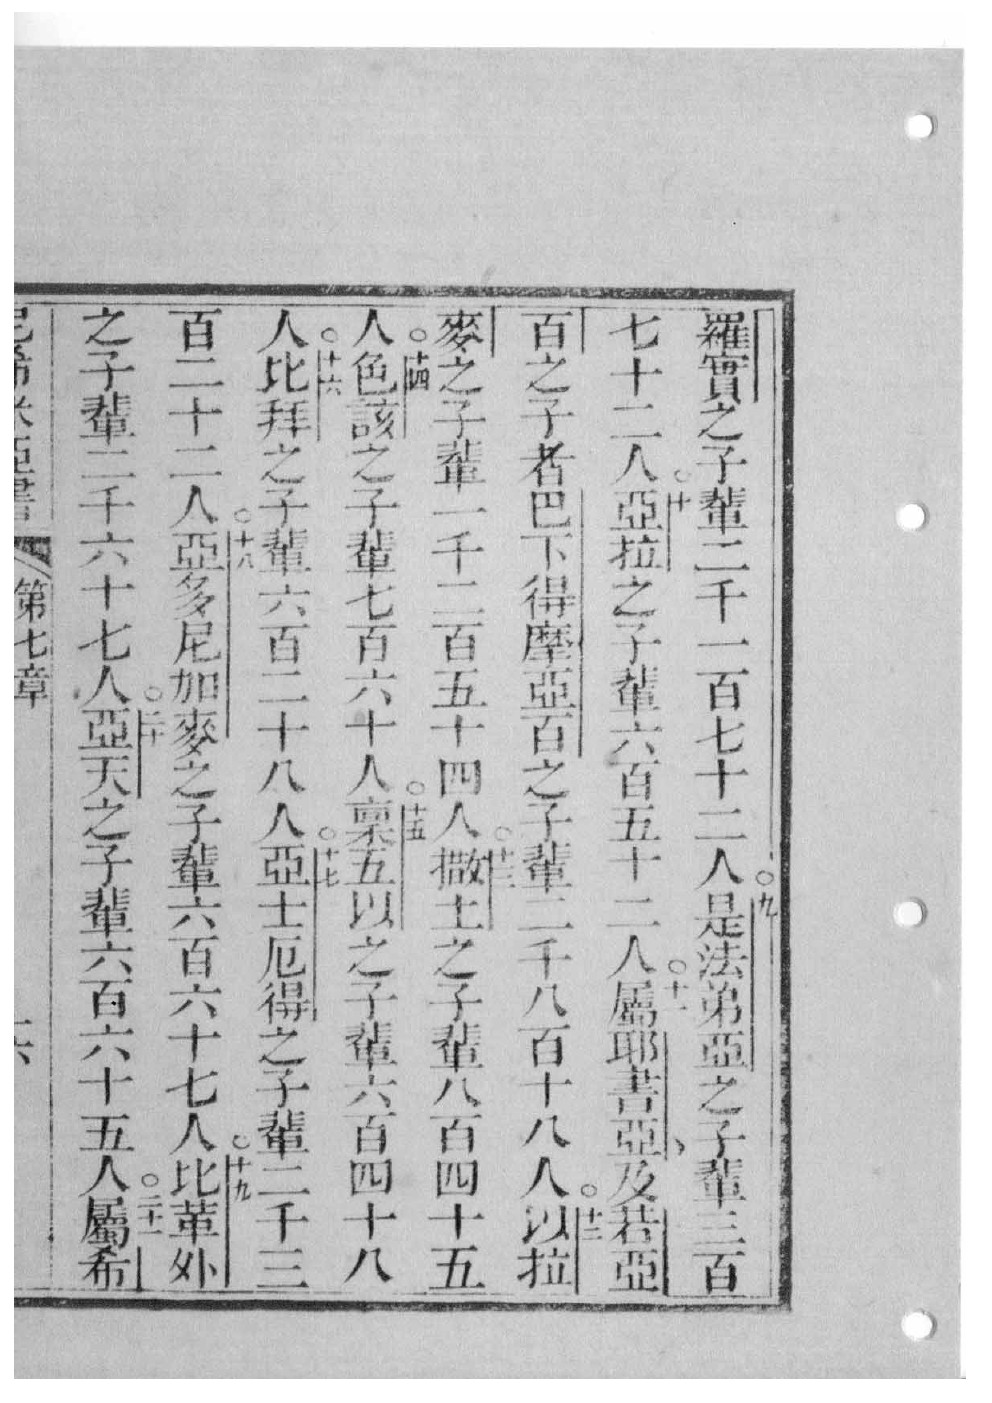 羅實之子輩二千一百七十二人○九是法弟亞之子輩三百
七十二人○十亞拉之子輩六百五十二人○十一屬耶書亞及若亞
百之子者巴下得摩亞百之子輩二千八百十八人○十二以拉
麥之子輩一千二百五十四人○十三撒土之子輩八百四十五
人○十四色該之子輩七百六十人○十五稟五以之子輩六百四十八
人○十六比拜之子輩六百二十八人○十七亞士厄得之子輩二千三
百二十二人○十八亞多尼加麥之子輩六百六十七人○十九比革外
之子輩二千六十七人○二十亞天之子輩六百六十五人○二十一屬希
尼希米亞書 第七章